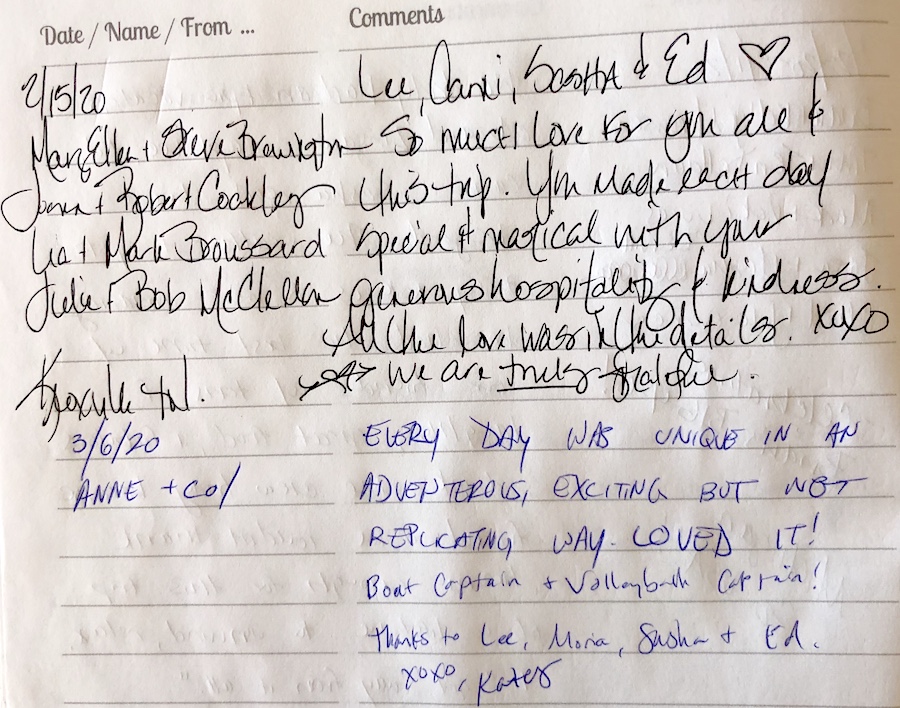 Date / Name / From ... Comments
2/15/20 Lee, Dani, Sascha & Ed ♡
MaryEllen + Steve Brewington So much love for you all &
+ Robert Cockley this trip. You made each day
Lia + Mark Broussard special & magical with your
Julie & Bob McClellan generous hospitality & kindness.
All the love was in the details. XOXO
We are truly grateful.
Knoxville TN.
3/6/20 EVERY DAY WAS UNIQUE IN AN
ANNE + CO/ ADVENTEROUS, EXCITING BUT NOT
REPLICATING WAY. LOVED IT!
Boat Captain + Volleyball Captain!
Thanks to Lee, Moria, Sasha + Ed.
XOXO,